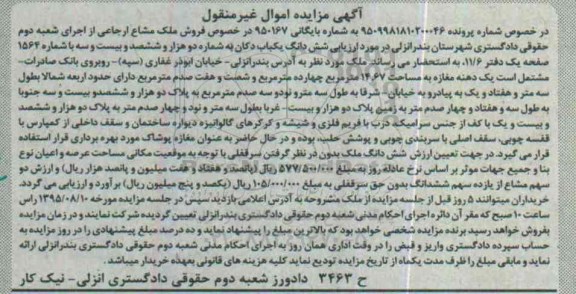 آگهی مزایده اموال غیرمنقول
در خصوص شماره پرونده ۹۵۰۹۹۸۱۸۱۰۲۰۰۰۴۶ به شماره بایگانی ۹۵۰۱۶۷ در خصوص فروش ملک مشاع ارجاعی از اجرای شعبه دوم
حقوقی دادگستری شهرستان بندرانزلی در مورد ارزیابی شش دانگ یکباب دکان به شماره دو هزار و ششصد و بیست و سه با شماره ۱۵۶۴
صفحه یک دفتر ۱۱/۶، به استحضار می رساند: ملک مورد نظر به آدرس بندرانزلی- خیابان ابوذر غفاری (سپه)- روبروی بانک صادرات-
مشتمل است یک دهنه مغازه به مساحت ۱۴،۶۷ مترمربع چهارده مترمربع و شصت و هفت صدم مترمربع دارای حدود اربعه شمالا بطول
سه متر و هفتاد و یک به پیاده‌رو به خیابان- شرقا به طول سه متر و نود و سه صدم مترمربع به پلاک دو هزار و ششصدو بیست و سه جنوبا
به طول سه و هفتاد و چهار صدم متر به زمین پلاک دو هزار و بیست- غربا بطول سه متر و نود و چهار صدم متر به پلاک دو هزار و ششصد
و بیست و یک با کف از جنس سرامیک، درب با فریم فلزی و شیشه و کرکرهای گالوانیزه دیواره ساختمان و سقف داخلی از کمپارس با
قفسه چوبی، سقف اصلی با سربندی چوبی و پوشش حلب، بوده و در حال حاضر به عنوان مغازه پوشاک مورد بهره برداری قرار استفاده
قرار می گیرد. در جهت تعیین ارزش شش دانگ ملک بدون در نظر گرفتن سرقفلی با توجه به موقعیت مکانی مساحت عرصه و اعیان نوع
بنا و جمیع جهات موثر بر اساس نرخ عادله روز به مبلغ ۵۷۷/۵۰۰/۰۰۰ ریال (پانصد و هفتاد و هفت میلیون و پانصد هزار ریال) و ارزش دو
سهم مشاع از یازده سهم ششدانگ بدون حق سرقفلی به مبلغ ۱۰۵/۰۰۰/۰۰۰ ریال (یکصد و پنج میلیون ریال) برآورد و ارزیابی می گردد.
خریداران میتوانند ۵ روز قبل از جلسه مزایده از ملک مشروحه به آدرس اعلامی بازدید سپس در جلسه مزایده مورخه ۱۳۹۵/۰۸/۱۰ راس
ساعت ۱۰ صبح که مقر آن دائره اجرای احکام مدنی شعبه دوم حقوقی دادگستری بندرانزلی تعیین گردیده شرکت نمایند و در زمان مزایده
بفروش خواهد رسید برنده مزایده شخصی خواهد بود که بالاترین مبلغ را پیشنهاد نماید و ده درصد مبلغ پیشنهادی را در روز مزایده به
حساب سپرده دادگستری واریز و فیض را در وقت اداری همان روز به اجرای احکام مدنی شعبه دوم حقوقی دادگستری بندرانزلی ارائه
نماید و مابقی مبلغ را ظرف مدت یکماه از تاریخ مزایده تودیع نماید کلیه هزینه های قانونی بعهده خریدار میباشد.
ح ۳۴۶۳ دادورز شعبه دوم حقوقی دادگستری انزلی- نیک کار